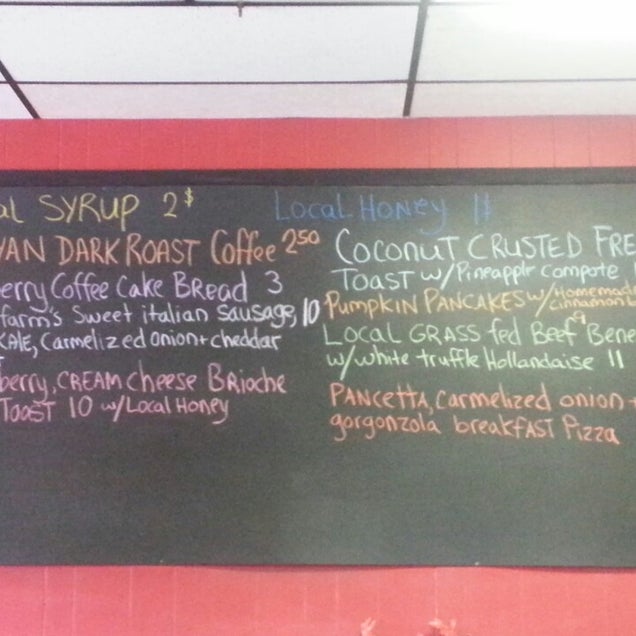 al SYRUP 2$
Local HONEY 11
YAN DARK ROAST Coffee 2.50
erry Coffee Cake BREAD 3
farm's Sweet italian sausage, 10
KALE, Carmelized onion + cheddar
berry, CREAM cheese BRioche
TOAST 10 w/Local HONEY
COCONUT CRUSTED FRE
TOAST w/Pineapplr compote
PUMPKIN PANCAKES w/Homemade
cinnamon
9
LOCAL GRASS fed Beef Bene
w/white truffle Hollandaise 11
PANCETTA, Carmelized onion +
gorgonzola breakfAST Pizza